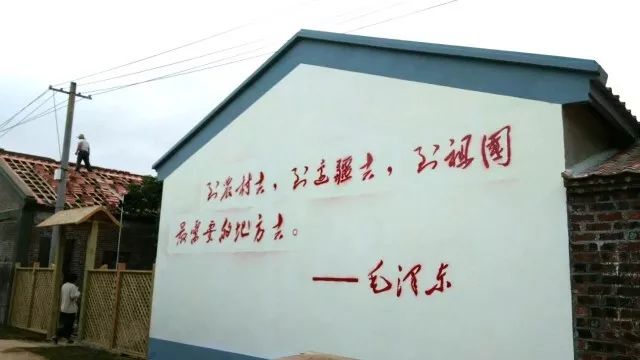 到农村去，到边疆去，到祖國
最需要的地方去。
——毛泽东